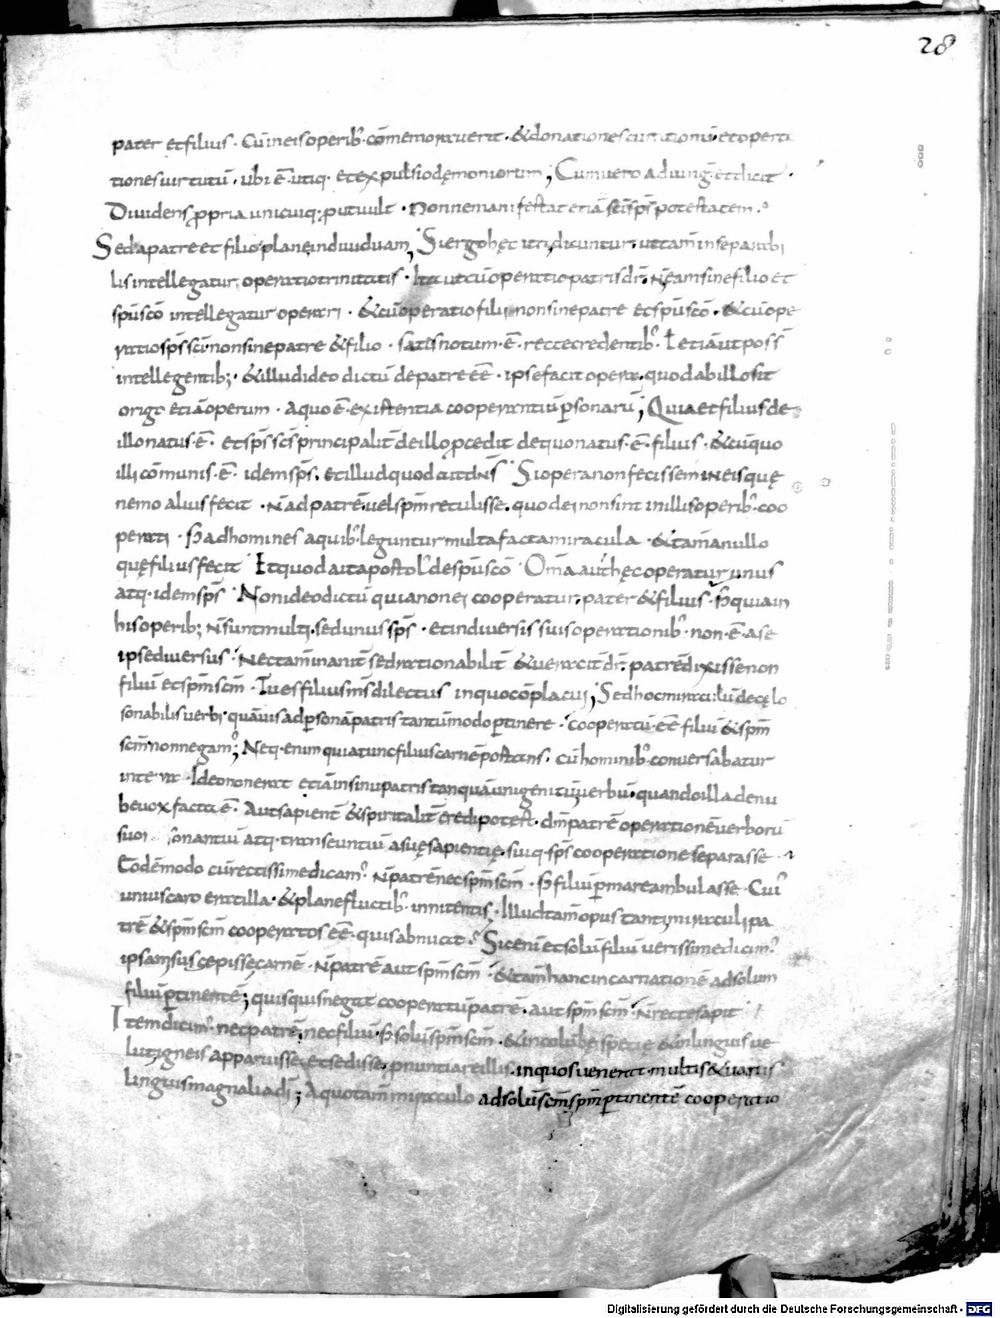 28
pater et filius · Cū in eis operib; cōmemoraverit · & donationes curationū et opera
tiones virtutū · ubi ē utiq· et expulsio dęmoniorum ; Cum vero adiung̅ et dicit ·
Dividens ꝓpria unicuiq; ꝓut vult · Nonne manifestat etiā sc̄i sp̄s potestatem ·
Sed a patre et filio plane individuam ; Si ergo hęc ita dicuntur · ut tam̄ insepaaabi
lis intellegatur operatio trinitatis · Ita ut cū operatio patris dr̄ · n̄ eam sine filio et
sp̄u sc̄o intellegatur operari · & cū operatio filii non sine patre et sp̄u sc̄o · & cū ope
ratio sp̄s sc̄i non sine patre & filio · satis notum · ē · recte credentib;
intellegentib; · & illud ideo dictū de patre eē · ipse facit opera · quod ab illo sit
origo etiā operum · a quo ē · existentia cooperantiū ꝑsonarū ; Quia et filius de
illo natus · ē · et sp̄s sc̄s principalit̄ de illo ꝓcedit de quo natus · ē · filius · & cū quo
illi cōmunis · ē · idem sp̄s · et illud quod ait dn̄s Si opera non fecissem in eis quę
nemo alius fecit · n̄ ad patrē vel sp̄m retulisse · quod ei non sint in illis operib; coo
perati · S; ad homines a quib; leguntur multa facta miracula · & tam̄ a nullo
quę filius fecit Et quod ait apostol; de sp̄u sc̄o · Om̄a aut̄ hęc operatur unus
atq· idem sp̄s Non ideo dictū quia non ei cooperatur pater & filius · S; quia in
his operib; n̄ sunt multi · sed unus sp̄s · et in diversis suis operationib; non · ē · a se
ipse diversus · Nec tam̄ inanit̄ sed rationabilit̄ & veracit̄ dr̄ · patrē dixisse non
filiū et sp̄m sc̄m · Tu es filius m̄s dilectus in quo cōplacui ; Sed hoc miraculū de cęlo
sonabilis verbi · quāvis ad ꝑsonā patris tantūmodo ꝑtinere · cooperatū · eē filiū & sp̄m
sc̄m non negam; Neq· enim quia tunc filius carnē portans · cū hominib; conversabatur
in terra · Ideo non erat etiā in sinu patris tanquā unigenitū verbū · quando illa de nu
be vox facta ē · Aut sapient̄ & spiritalit̄ credi potest · dm̄ patrē operationē verborū
suor sonantiū atq· transeuntiū a suę sapientię · suiq· sp̄s cooperatione separasse ·
Eodē modo cū rectissime dicam; N̄ patrē nec sp̄m sc̄m · S; filiū ꝑ mare ambulasse · Cui;
unius caro erat illa · & plane fluctib; innitentis · Illud tam̄ opus tanti miraculi pa
trē & sp̄m sc̄m cooperatos eē · quis abnuat · Sic eni et solū filiū verissime dicim;
ipsam suscepisse carnē · N̄ patrē aut sp̄m sc̄m · & tam̄ hanc incarnationē ad solum
filiū ꝑtinentē ; quisquis negat cooperatū patrē · aut sp̄m sc̄m · N̄ recte sapit
Item dicim; nec patrē · nec filiū · S; solū sp̄m sc̄m · & in colūbę specie & in linguis ve
lut igneis apparuisse · et sedisse · ꝓnuntiare illis · in quos venerat · multis & variis
linguis magnalia dī ; A quo tam̄ miraculo ad solū sc̄m sp̄m ꝑtinente cooperatio
Digitalisierung gefördert durch die Deutsche Forschungsgemeinschaft · DFG